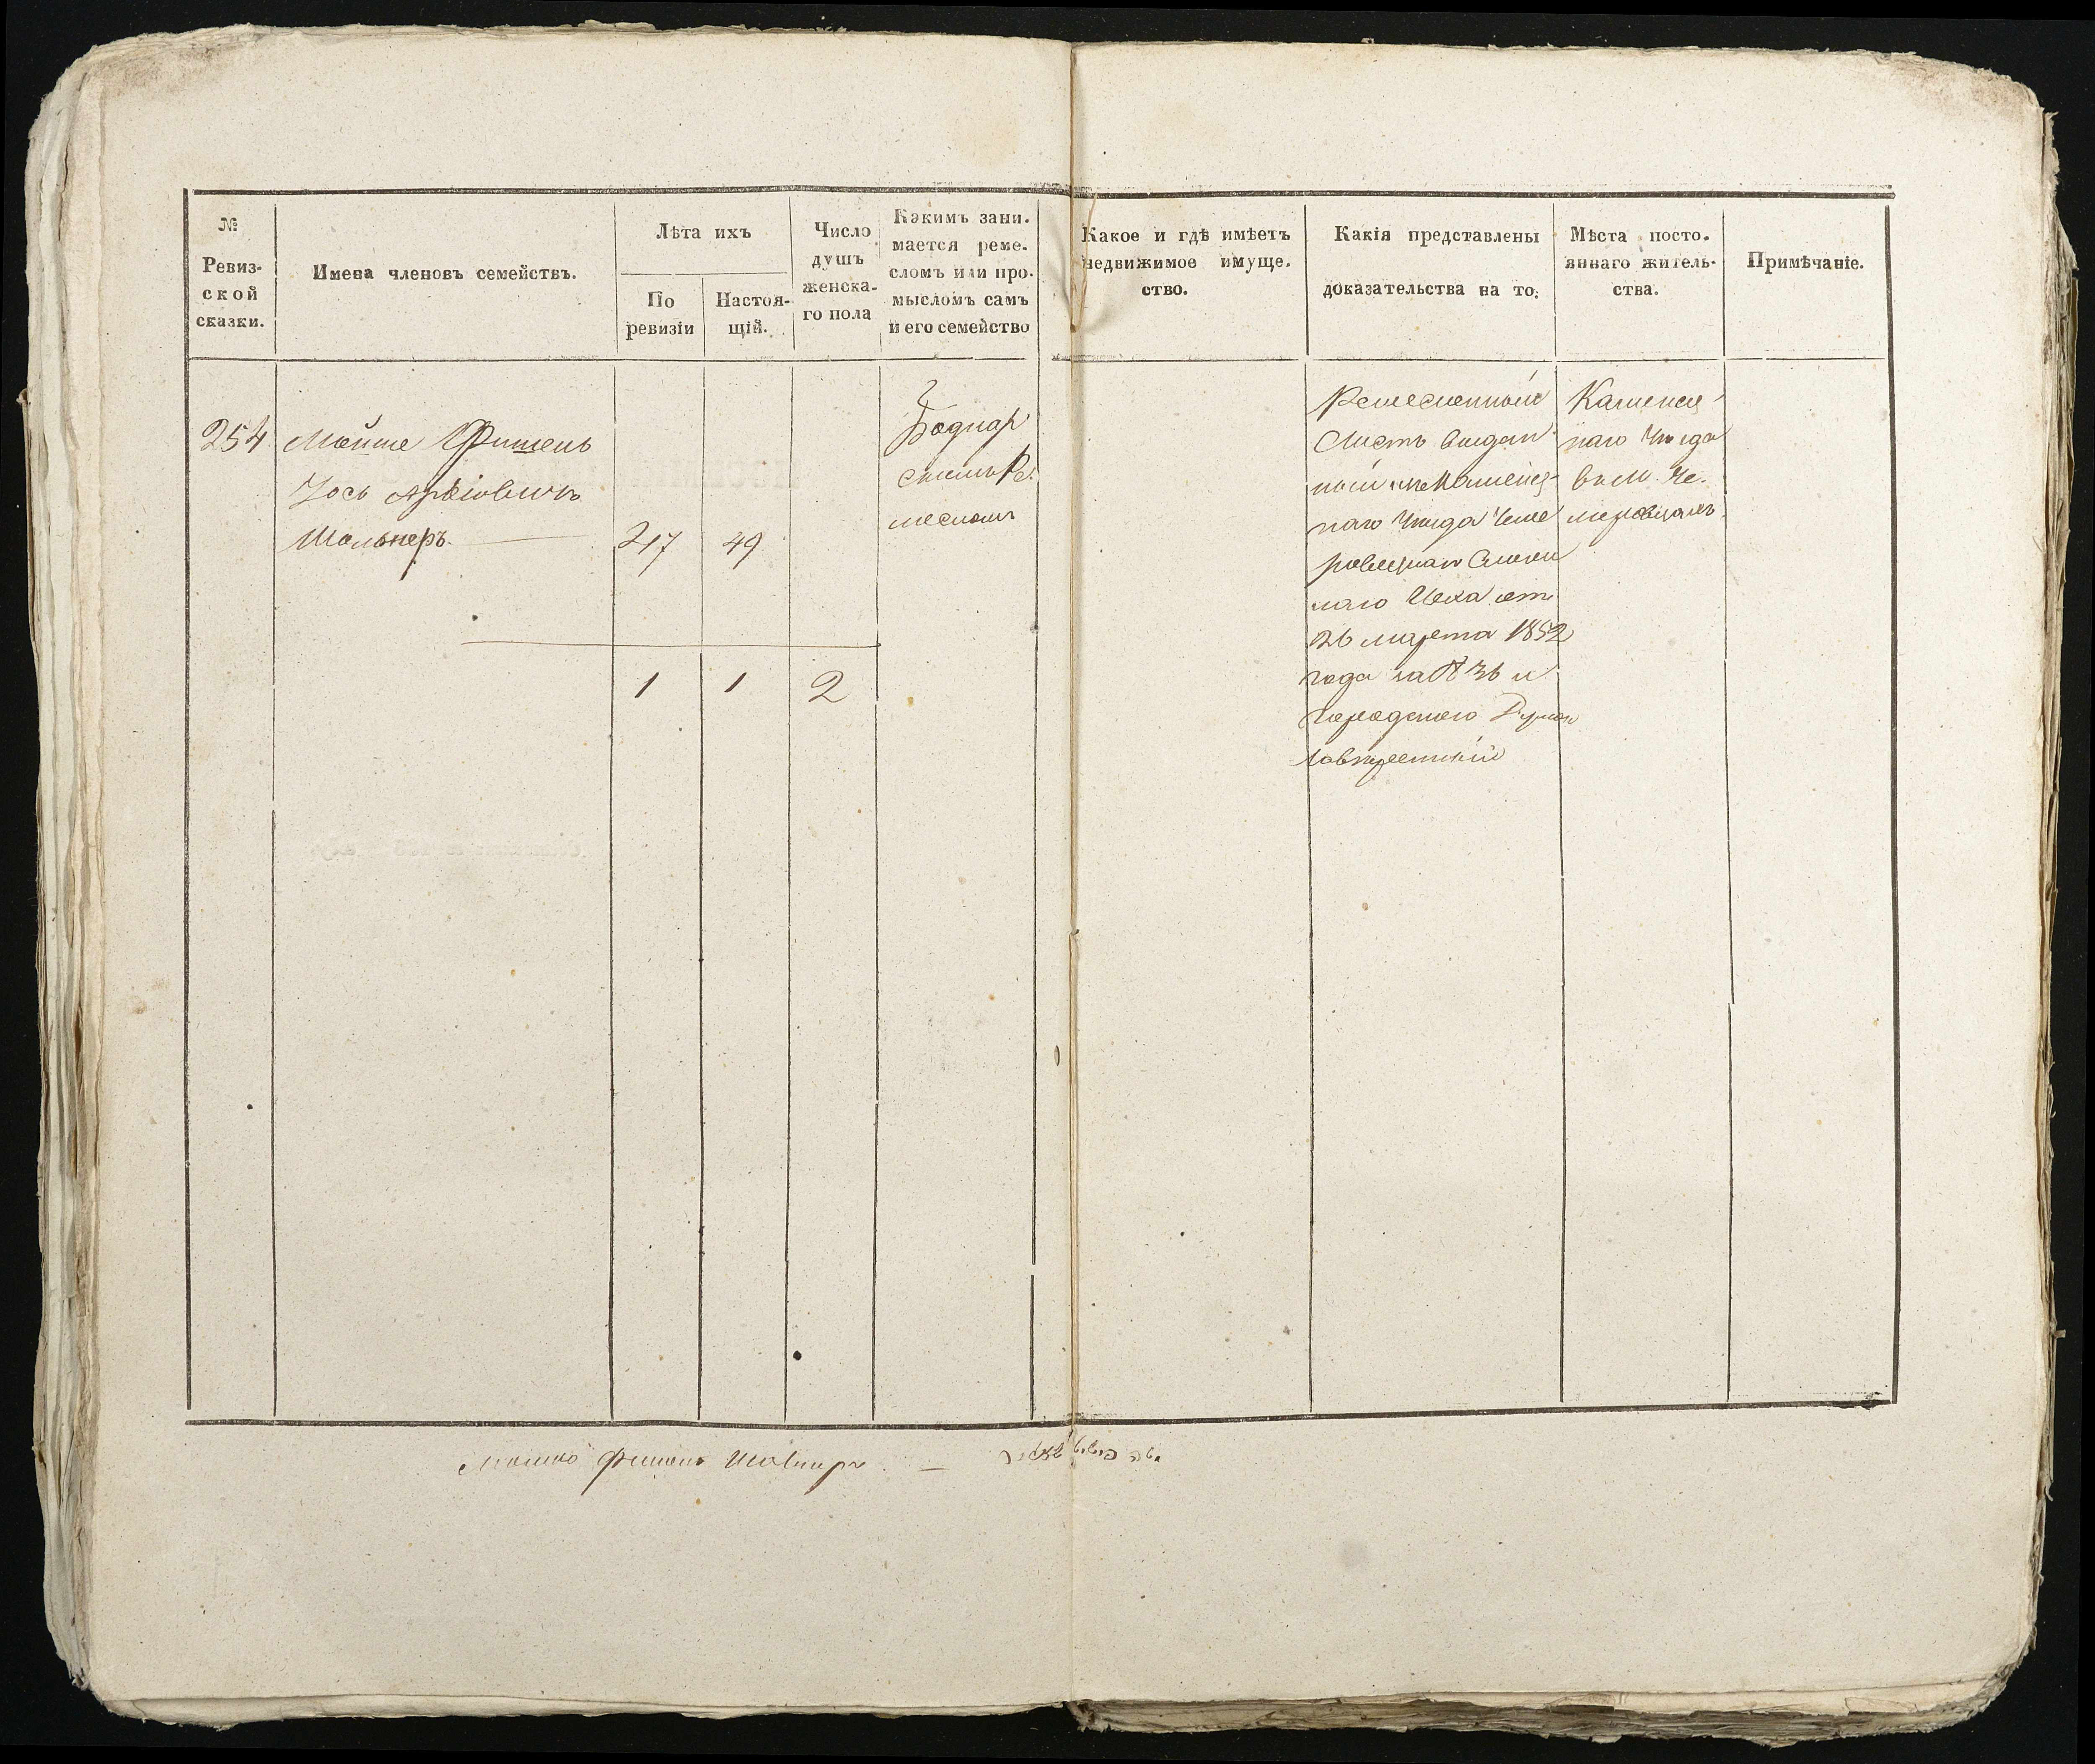 №
Ревиз-
ской
сказки.
Имена членовъ семействъ.
Лѣта ихъ
По
ревизіи
Настоя-
щій.
Число
душъ
женска-
го пола
Какимъ зани-
мается реме-
сломъ или про-
мысломъ самъ
и его семейство
Какое и гдѣ имѣетъ
недвижимое имуще-
ство.
Какія представлены
доказательства на то.
Мѣста посто-
яннаго житель-
ства.
Примѣчаніе.
254
Мойше Фишель
Іось
Шальнеръ.
49
1 1 2
Боднар
скимъ Ре
месломъ
Ремесленный
Листъ выдан
ный Каменец-
каго Уѣзда Чеме
ровецкаго
наго Цеха отъ
26 марта 1852
года за № 36 и
Городскою Думою
Каменец-
каго Уѣзда
въ М. Че-
меровцахъ
Мошко Фишель